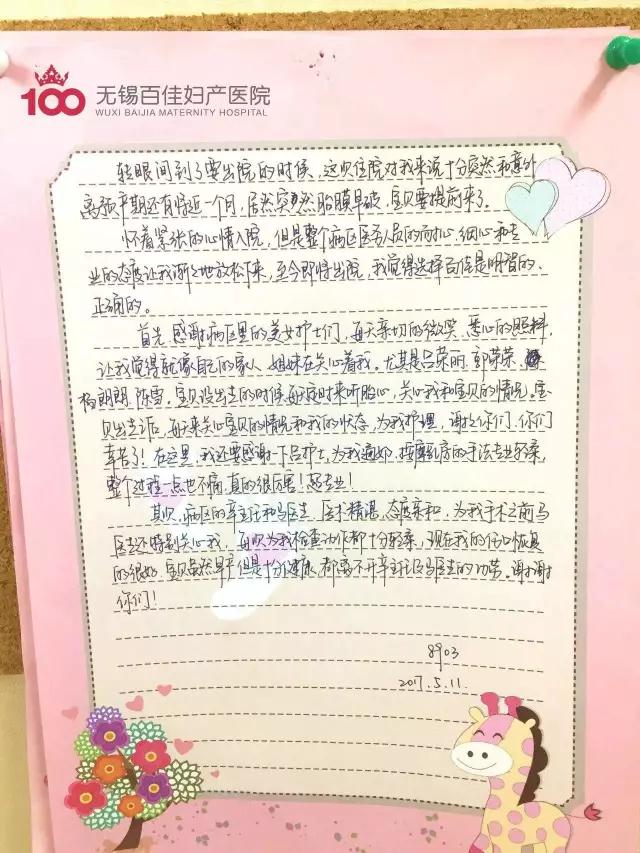 100 无锡百佳妇产医院
WUXI BAIJIA MATERNITY HOSPITAL
转眼间到了要出院的时候，这次住院对我来说十分突然和意外
离预产期还有将近一个月，居然突然胎膜早破，宝贝要提前来了。
怀着紧张的心情入院，但是整个病区医务人员的耐心、细心和专
业的态度让我渐渐地放松下来，至今即将出院，我觉得选择百佳是明智的、
正确的。
首先，感谢病区里的美女护士们，每天亲切的微笑、悉心的照料，
让我觉得就像自己的家人、姐妹在关心着我。尤其是吕荣丽、郭荣荣、
杨朗朗、陈雪。宝贝没出去的时候每天定时来听胎心，关心我和宝贝的情况。宝
贝出去后，每天来关心宝贝的情况和我的状态，为我护理，谢谢你们，你们
辛苦了！在这里，我还要感谢一下吕护士，为我通奶，按摩乳房的手法专业轻柔，
整个过程一点也不痛，真的很厉害！超专业！
其次，病区的辛主任和马医生，医术精湛，态度亲和，为我手术之前马
医生还特别关心我，每次为我检查动作都十分轻柔，现在我的伤口恢复
的很好，宝贝虽然早产但是十分健康，都离不开辛主任及马医生的功劳。谢谢
你们！
8903
2017.5.11